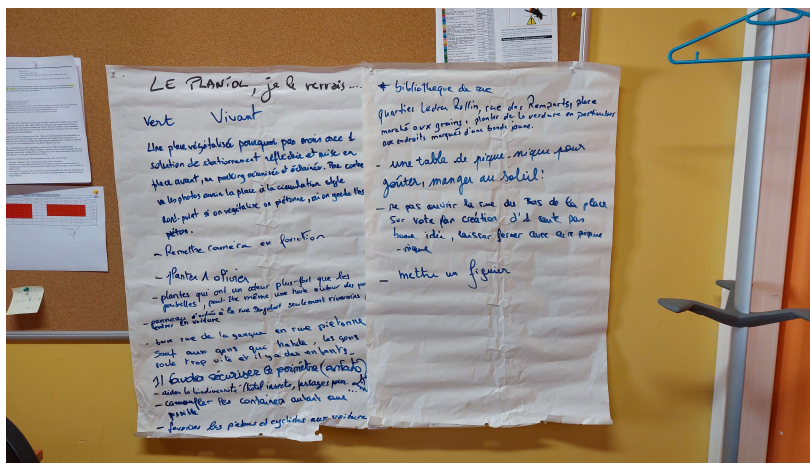 LE PLANIOL, je le verrais....
Vert Vivant
Une place végétalisée pourquoi pas mais avec 1
solution de stationnement réfléchie et mise en
place avant, un parking sécurisé et éclairée. Par contre
vu les photos ouvrir la place à la circulation style
Rond-point si on végétalise on piétonne, si on garde l'
piéton.
- Remettre caméra en fonction
- planter 1 olivier
- plantes qui ont un odeur plus fort que les
poubelles, peut être même une haie autour des po
- panneau d'entrée à la rue seulement riverains
rentrer en voiture
- rue de la ganque en rue pietonne
sauf aux gens qui habite, les gens
roule trop vite et il y a des enfants.
Il faudra sécuriser le périmètre (enfants)
- aider la biodiversité (hôtel insecte, passages pour
- camoufler les containers autant que
possible
- favoriser les piétons et cyclistes aux voiture
+ bibliotheque de rue
quartier Ledru Rollin, rue des Remparts, place
marché aux grains, planter de la verdure en particulier
aux endroits marqués d'une bande jaune.
- une table de pique-nique pour
goûter, manger au soleil!
- ne pas ouvrir la rue du Bas de la place
sur vote par création d'1 route pas
bonne idée, laisser fermer avec aire pique
-nique
- mettre un figuier